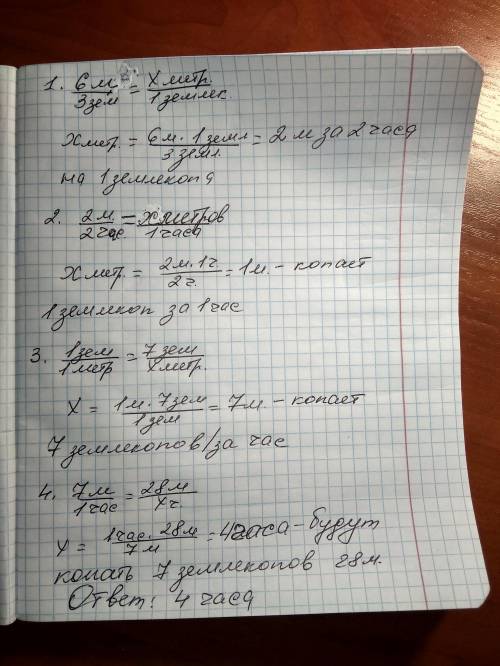 1. 6 м/3 зем = X метр./1 землек.
X метр. = 6 м. 1 земл/3 земл. = 2 м за 2 часа
на 1 землекопа
2. 2 м/2 час. = X метров/1 часа
X метр. = 2 м. 1 ч/2 ч. = 1 м. - копает
1 землекоп за 1 час
3. 1 зем/1 метр = 7 зем/X метр.
X = 1 м. 7 зем/1 зем = 7 м. - копает
7 землекопов/за час
4. 7 м/1 час = 28 м/X ч.
X = 1 час. 28 м/7 м = 4 часа - будут
копать 7 землекопов 28 м.
Ответ: 4 часа